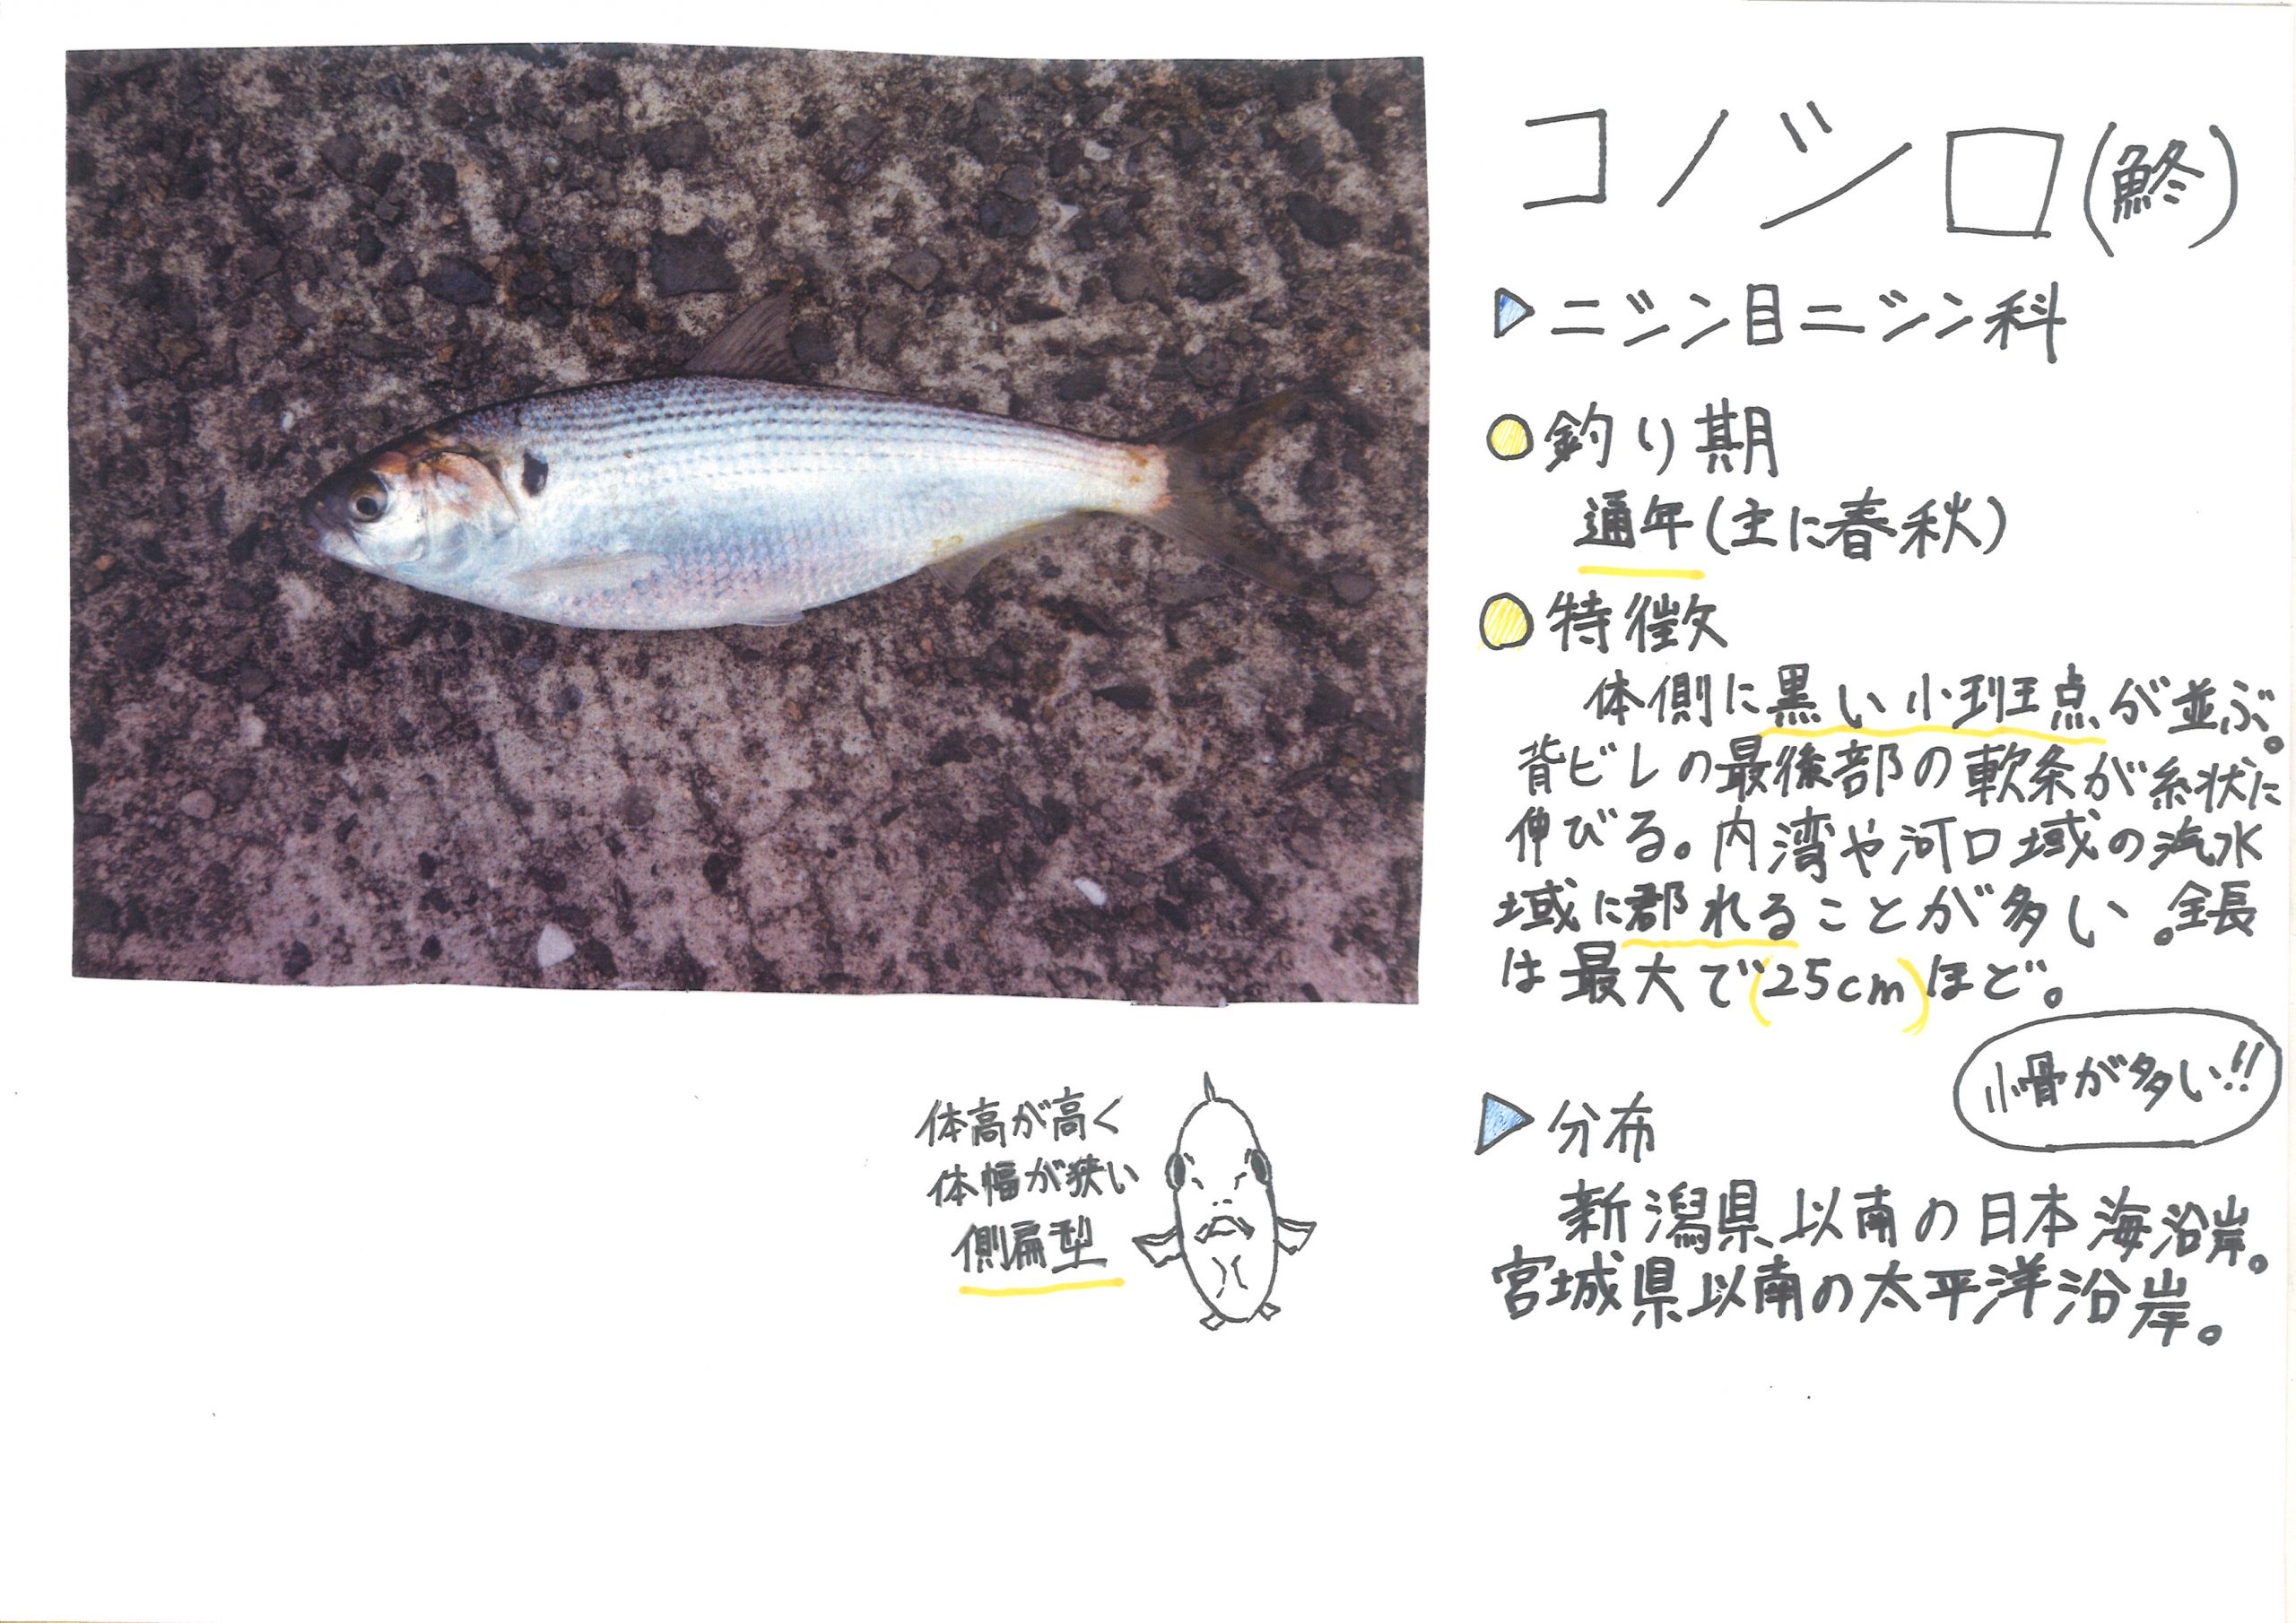 コノシロ(鮗)
ニシン目ニシン科
釣り期
通年(主に春秋)
特徴
体側に黒い小班点が並ぶ。
背ビレの最後部の軟条が糸状に
伸びる。内湾や河口域の汽水
域に郡れることが多い。全長
は最大で(25cm)ほど。
小骨が多い!!
分布
新潟県以南の日本海沿岸。
宮城県以南の太平洋沿岸。
体高が高く
体幅が狭い
側扁型